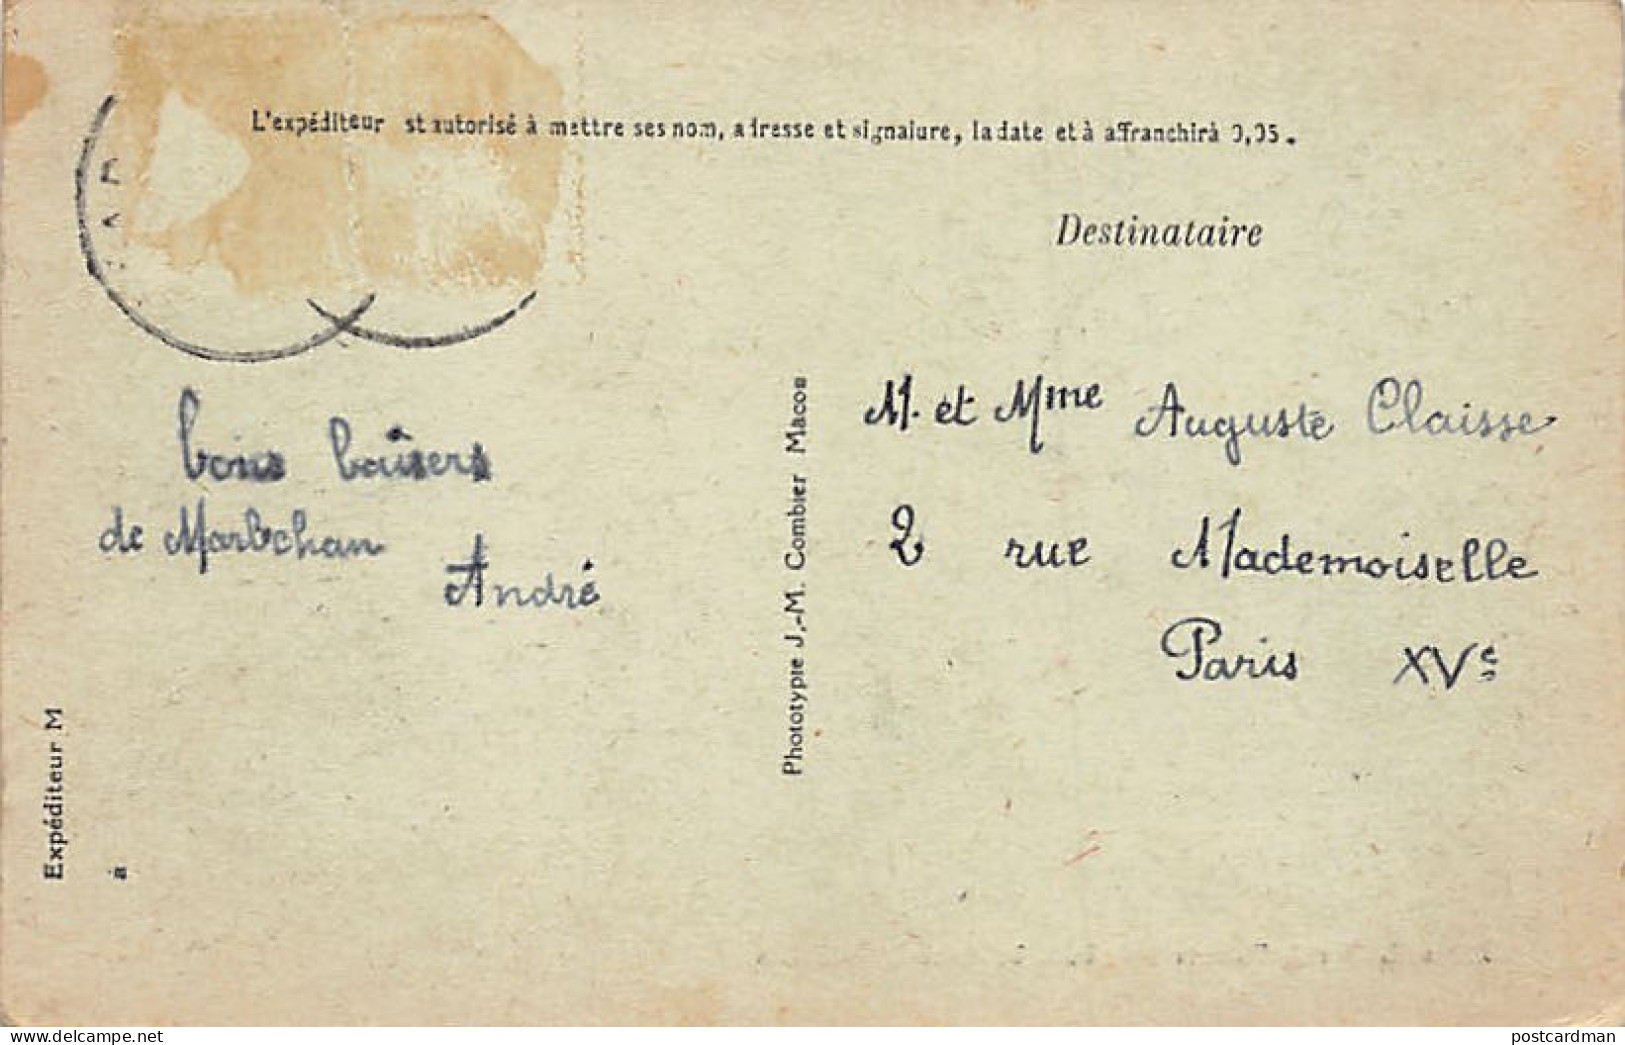 L'expéditeur st autorisé à mettre ses nom, adresse et signature, la date et à affranchir à 0,05.
Destinataire
bons baisers
de Marbchan
André
Expéditeur M
à
Phototypie J.-M. Combier Macon
M. et Mme Auguste Claisse
2 rue Mademoiselle
Paris XVe
delcampe.net
postcardman